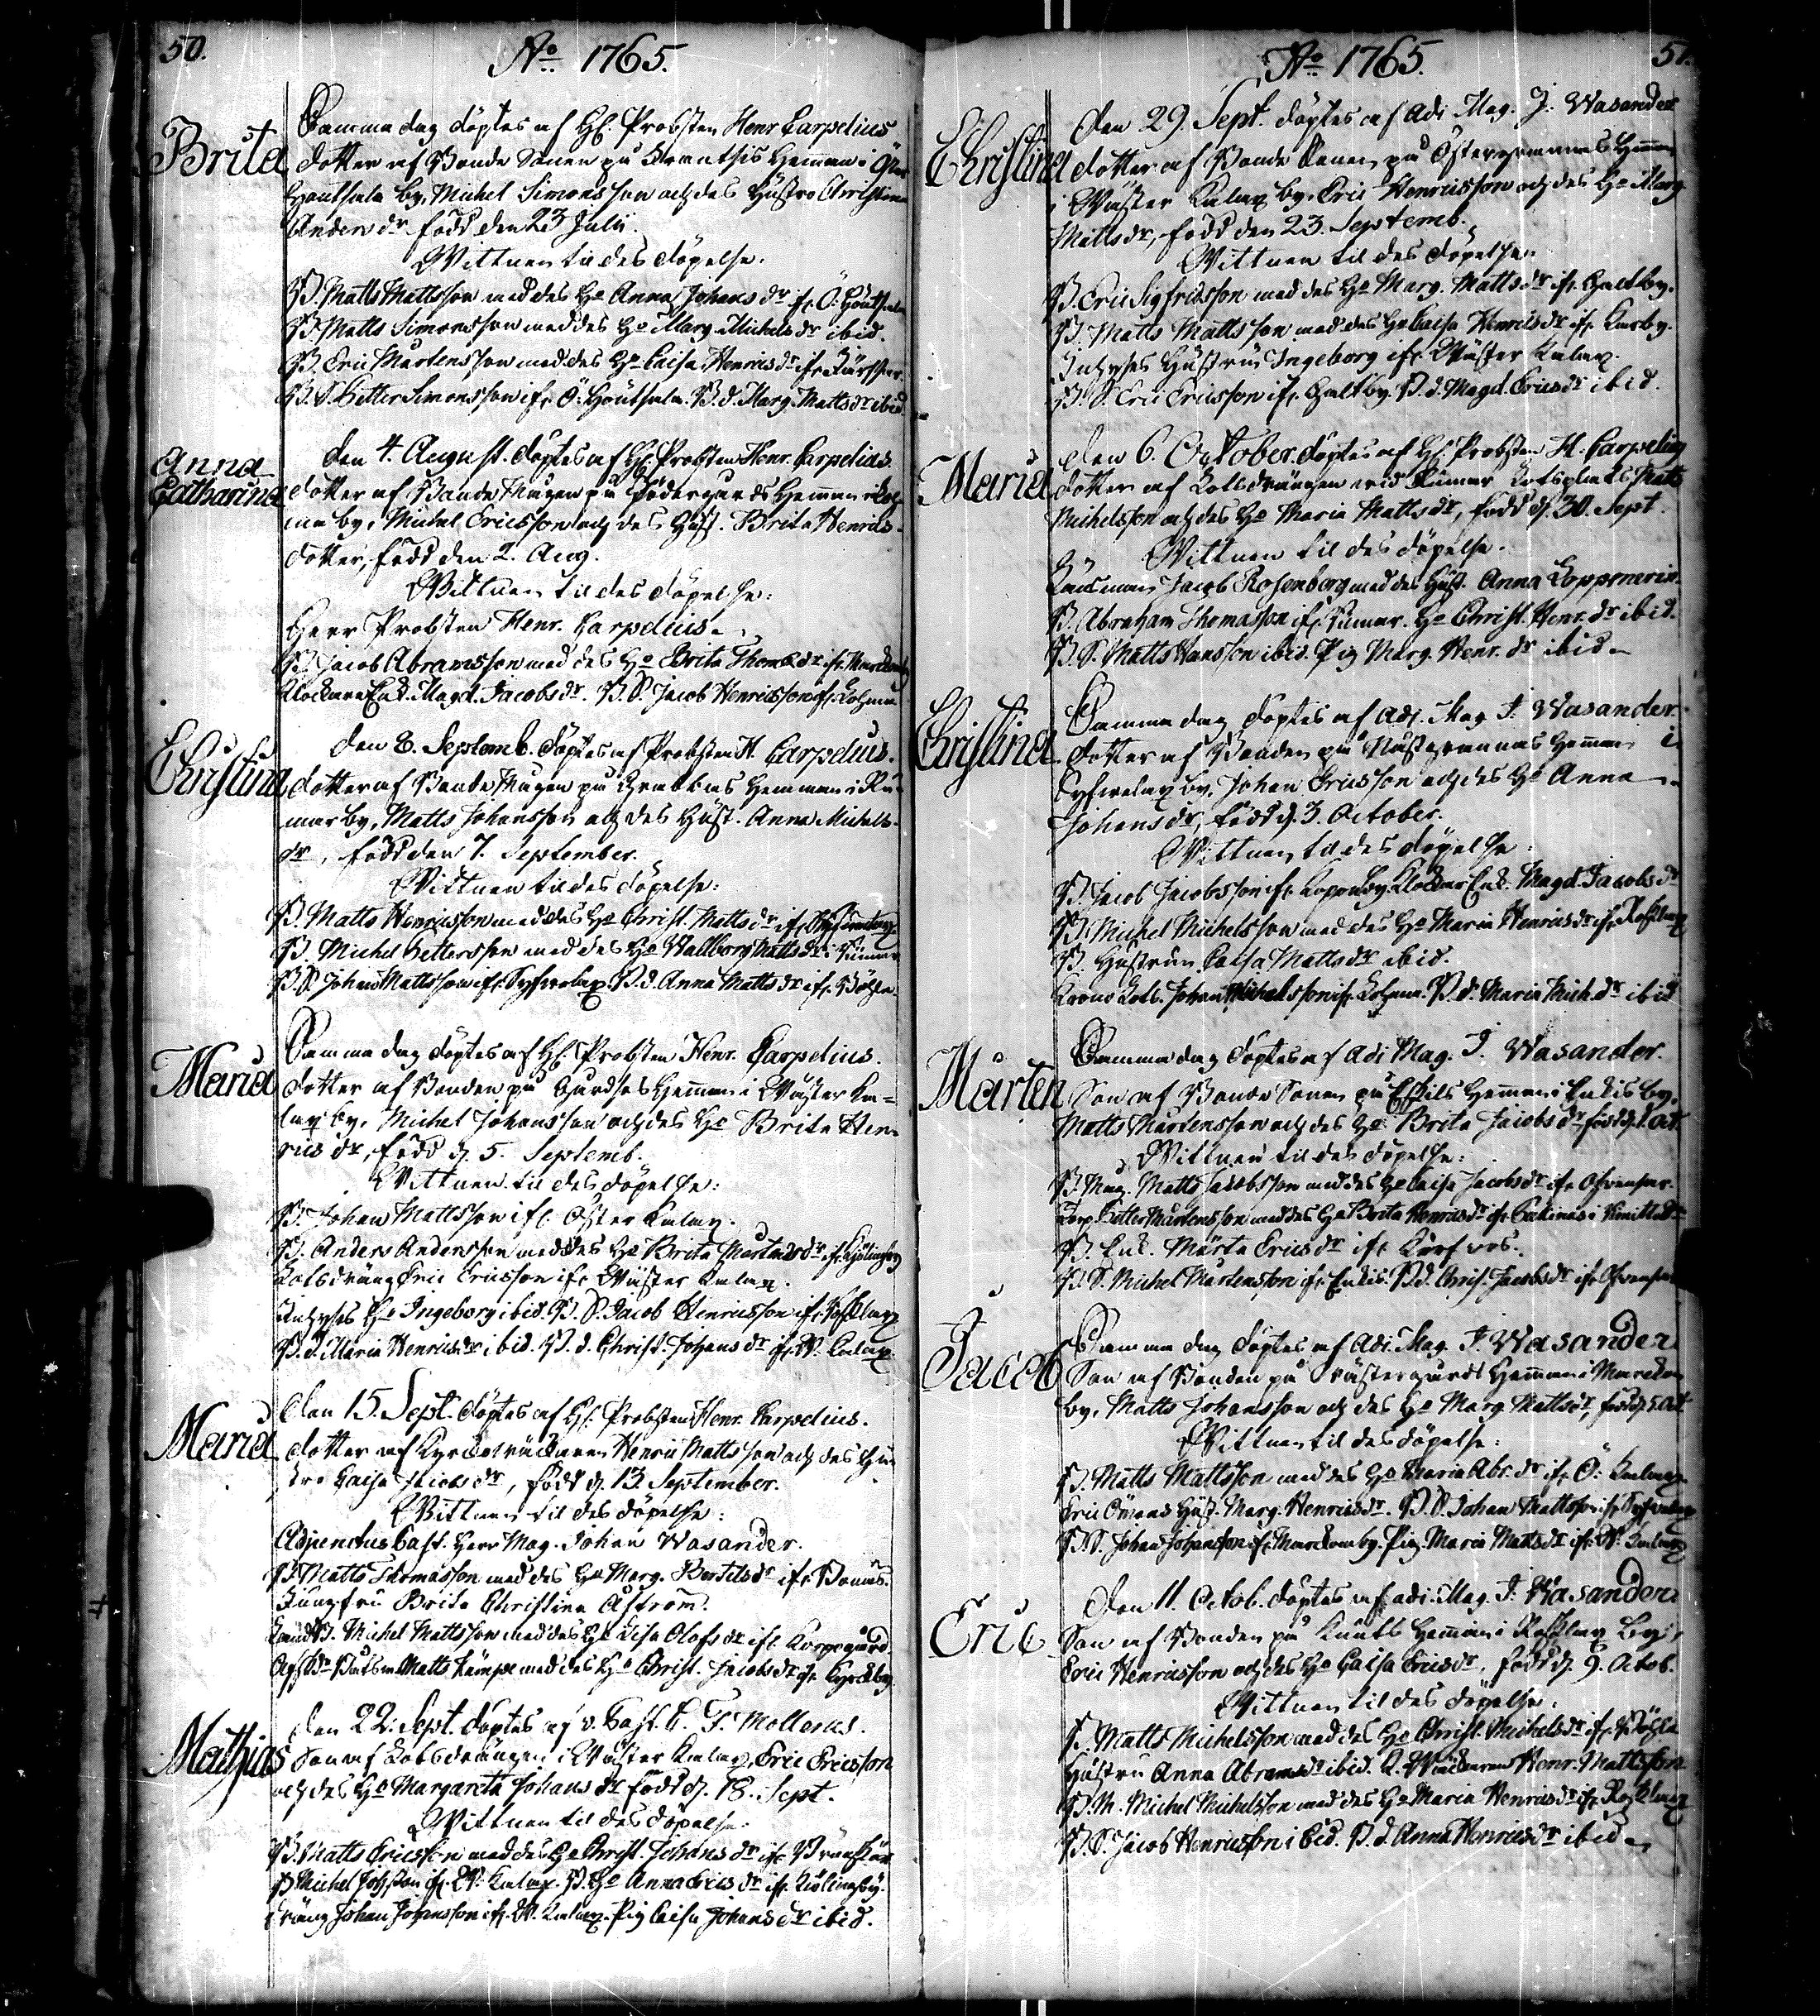 50.
No 1765.
Brita
Samma dag döptes af H. Probsten Henr Carpelius
dotter af Bonde Sonen på Hemman i Öster
by, Michel Simonsson och des Hustro Christina
Anders dr född den 23 Julii.
Wittnen til des döpelse.
B. Matts Mattsson med des Ho Anna Johans dr ifr. Ö.
B. Matts Simonsson med des Ho Marg. Michels dr ibid.
B. Eric Mårtensson med des Ho Caisa Henrics dr ifr.
B. S. Petter Simonsson ifr. Ö. B. d. Marg. Matts dr ibid.
Anna
Catharina
Den 4. August. döptes af H. Probsten Henr. Carpelius.
dotter af Bonde Mågen på Södergårds Hemman i
by, Michel Ericsson och des Hust. Brita Henrics
dotter, född den 2. Aug.
Wittnen til des döpelse:
Herr Probsten Henr. Carpelius.
B. Jacob Abramsson med des Ho Brita Thoms dr ifr.
Klockare Enk. Magd. Jacobs dr. B. S. Jacob Henricsson ifr.
Christina
Den 8. Septemb. döptes af Probsten H. Carpelius.
dotter af Bonde Mågen på Hemman i Ri-
mar by, Matts Johansson och des Hust. Anna Michels
dr, född den 7. September.
Wittnen til des döpelse:
B. Matts Henricsson med des Ho Christ. Matts dr ifr.
B. Michel Pettersson med des Ho Wallborg Matts dr i Rimar
B. S. Johan Mattsson ifr. Tyfwelax. B. d. Anna Matts dr ifr. Böhle.
Maria
Samma dag döptes af H. Probsten Henr. Carpelius.
dotter af Bonden på Hemman i Wäster Ka-
lax by, Michel Johansson och des Ho Brita Hen
rics dr, född d. 5. Septemb.
Wittnen til des döpelse:
B. Johan Mattsson ifr. Öster Kalax.
B. Anders Andersson med des Ho Brita Mårtens dr ifr.
Lotsdräng Eric Ericsson ifr. Wäster Kalax.
Ho Ingeborg ibid. B. S. Jacob Henricsson ifr.
B. d. Maria Henrics dr ibid. B. d. Christ. Johans dr ifr. W. Kalax.
Maria
Den 15. Sept. döptes af H. Probsten Henr. Carpelius.
dotter af Kyrckowäcktaren Henric Mattsson och des Hu
stro Caisa Jacobs dr, född d. 13. September.
Wittnen til des döpelse:
Adjunctus Past. Herr Mag. Johan Wasander.
B. Matts Thomasson med des Ho Marg. Bertils dr ifr.
Jungfru Brita Christina Åström.
B. Michel Mattsson med des Ho Lisa Olofs dr ifr. Korpogård
Båtsm. Matts Kämpe med des Ho Christ. Jacobs dr ifr. Kyrckby.
Mathias
Den 22. Sept. döptes af v. Past. C. F. Mollerus.
Son af Lotsdrängen i Wäster Kalax, Eric Ericsson
och des Ho Margareta Johans dr född d. 18. Sept.
Wittnen til des döpelse:
B. Matts Ericsson med des Ho Christ. Johans dr ifr.
B. Michel Johsson ifr. W. Kalax. B. Ho Anna Erics dr ifr. Kiölingby.
dräng Johan Johansson ifr. W. Kalax. Pig. Caisa Johans dr ibid.
No 1765.
51.
Christina
Den 29. Sept. döptes af Adi. Mag. J. Wasander
dotter af Bonde Sonen på Östergranas Hemman
i Wäster Kalax by, Eric Henricsson och des Ho Marg
Matts dr, född den 23. Septemb.
Wittnen til des döpelse.
B. Eric Sigfridsson med des Ho Marg. Matts dr ifr. Galtby.
B. Matts Mattsson med des Ho Caisa Henrics dr ifr.
Hustru Ingeborg ifr. Wäster Kalax.
B. S. Eric Ericsson ifr. Galtby. B. d. Magd. Erics dr ibid.
Maria
Den 6. October. döptes af H. Probsten H. Carpelius
dotter af Lotsdrängen wid Rimar Matts
Michelsson och des Ho Maria Matts dr, född d. 30. Sept.
Wittnen til des döpelse.
Jacob Rosenborg med des Hust. Anna Kopponerin.
B. Abraham Thomasson ifr. Rimar. Ho Christ. Henr. dr ibid.
B. S. Matts Hansson ibid. Pig. Marg. Henr. dr ibid.
Christina
Samma dag döptes af Adj. Mag. J. Wasander.
dotter af Bonden på Hemman i
Tyfwelax by, Johan Ericsson och des Ho Anna
Johans dr, född d. 3. October.
Wittnen til des döpelse:
B. Jacob Jacobsson ifr. Klockar Enk. Magd. Jacobs dr
B. Michel Michelsson med des Ho Maria Henrics dr ifr.
B. Hustrun Caisa Matts dr ibid.
Krono Lots. Johan Michelsson ifr. B. d. Maria Mich. dr ibid
Mårten
Samma dag döptes af Adi. Mag. J. Wasander.
Son af Bonde Sonen på Eskils Hemman i Enkis by,
Matts Mårtensson och des Ho Brita Jacobs dr född d. 1. Oct.
Wittnen til des döpelse:
B. Mag. Matts Jacobsson med des Ho Caisa Jacobs dr ifr.
Corp. Petter Mårtensson med des Ho Brita Henrics dr ifr.
B. Enk. Märta Erics dr ifr.
B. S. Michel Mårtensson ifr. Enkis. B. d. Christ. Jacobs dr ifr.
Jacob
Samma dag döptes af Adi. Mag. J. Wasander
Son af Bonden på Wästergårds Hemman i
by, Matts Johansson och des Ho Marg. Matts dr, född d. 5. Oct
Wittnen til des döpelse:
B. Matts Mattsson med des Ho Maria Abr. dr ifr. Ö. Kalax.
Eric Ömans Hust. Marg. Henrics dr. B. S. Johan Mattsson ifr. Tyfwelax
B. S. Johan Johansson ifr. Pig. Maria Matts dr ifr. W. Kalax
Eric
Den 11. Octob. döptes af adi. Mag. J. Wasander.
Son af Bonden på Knuts Hemman i By,
Eric Henricsson och des Ho Caisa Erics dr, född d. 9. Octob.
Wittnen til des döpelse.
B. Matts Michelsson med des Ho Christ. Michels dr ifr. Böhle
Hustru Anna Abrams dr ibid. K. Wäcktaren Henr. Mattsson
B. M. Michel Michelsson med des Ho Maria Henrics dr ifr.
B. S. Jacob Henricsson ibid. B. d. Anna Henrics dr ibid.